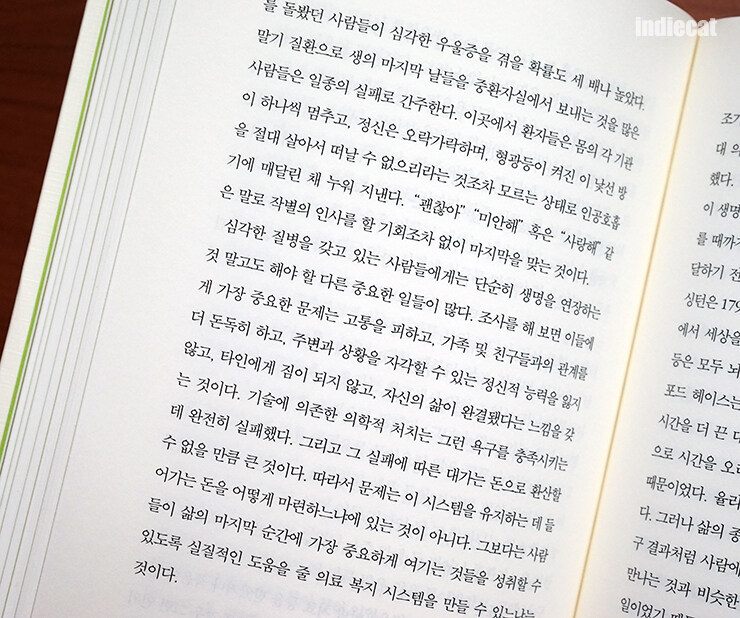 indiecat
를 돌봤던 사람들이 심각한 우울증을 겪을 확률도 세 배나 높았다.
말기 질환으로 생의 마지막 날들을 중환자실에서 보내는 것을 많은
사람들은 일종의 실패로 간주한다. 이곳에서 환자들은 몸의 각 기관
이 하나씩 멈추고, 정신은 오락가락하며, 형광등이 켜진 이 낯선 방
을 절대 살아서 떠날 수 없으리라는 것조차 모르는 상태로 인공호흡
기에 매달린 채 누워 지낸다. “괜찮아” “미안해” 혹은 “사랑해” 같
은 말로 작별의 인사를 할 기회조차 없이 마지막을 맞는 것이다.
심각한 질병을 갖고 있는 사람들에게는 단순히 생명을 연장하는
것 말고도 해야 할 다른 중요한 일들이 많다. 조사를 해 보면 이들에
게 가장 중요한 문제는 고통을 피하고, 가족 및 친구들과의 관계를
더 돈독히 하고, 주변과 상황을 자각할 수 있는 정신적 능력을 잃지
않고, 타인에게 짐이 되지 않고, 자신의 삶이 완결됐다는 느낌을 갖
는 것이다. 기술에 의존한 의학적 처치는 그런 욕구를 충족시키는
데 완전히 실패했다. 그리고 그 실패에 따른 대가는 돈으로 환산할
수 없을 만큼 큰 것이다. 따라서 문제는 이 시스템을 유지하는 데 들
어가는 돈을 어떻게 마련하느냐에 있는 것이 아니다. 그보다는 사람
들이 삶의 마지막 순간에 가장 중요하게 여기는 것들을 성취할 수
있도록 실질적인 도움을 줄 의료 복지 시스템을 만들 수 있느냐는
것이다.
조기
대 의
했다.
이 생명
를 때까지
달하기 전
싱턴은 179
에서 세상을
등은 모두 뇌
포드 헤이스는
시간을 더 끈 다
으로 시간을 오래
때문이었다. 율리
다. 그러나 삶의 종
구 결과처럼 사람에
만나는 것과 비슷한
일이었기 때문